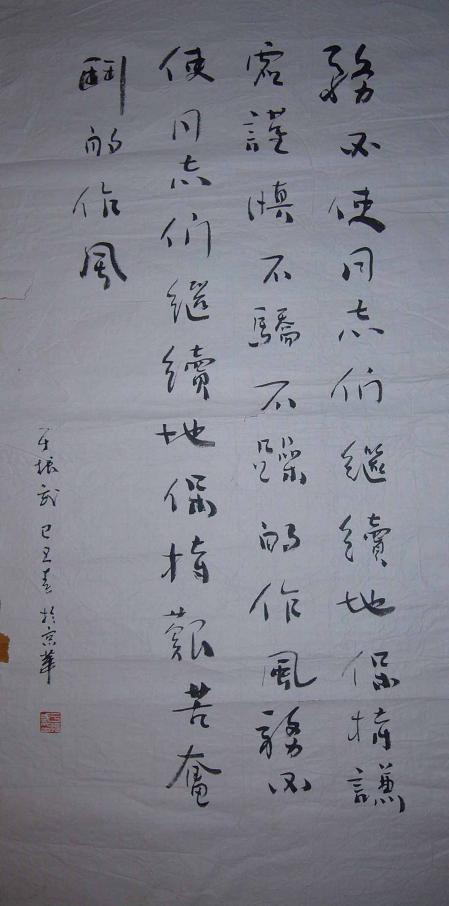 務必使同志们繼續地保持謙
虛謹慎不驕不躁的作風務必
使同志们繼續地保持艱苦奮
鬥的作風
于振武 己丑春 於京華